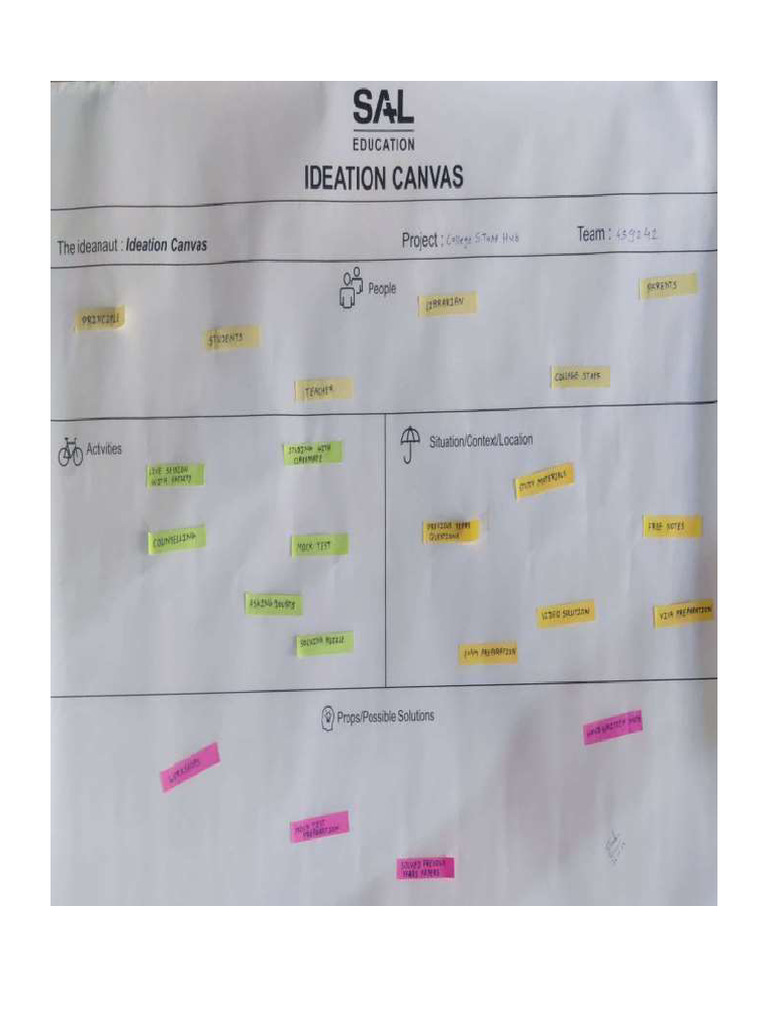 SAL
EDUCATION
IDEATION CANVAS
The ideanaut : Ideation Canvas
Project : College STUDY HUB
Team : 439241
People
PRINCIPLE
STUDENTS
TEACHER
LIBRARIAN
COLLEGE STAFF
PARENTS
Activities
LIVE SESSION
WITH FACULTY
STUDING WITH
CLASSMATE
COUNSELLING
MOCK TEST
ASKING DOUBTS
SOLVING PUZZLE
Situation/Context/Location
STUDY MATERIALS
PREVIOUS YEARS
QUESTIONS
FREE NOTES
VIDEO SOLUTION
VIVA PREPARATION
EXAM PREPARATION
Props/Possible Solutions
WORKSHOPS
MOCK TEST
PREPARATION
SOLVED PREVIOUS
YEARS PAPERS